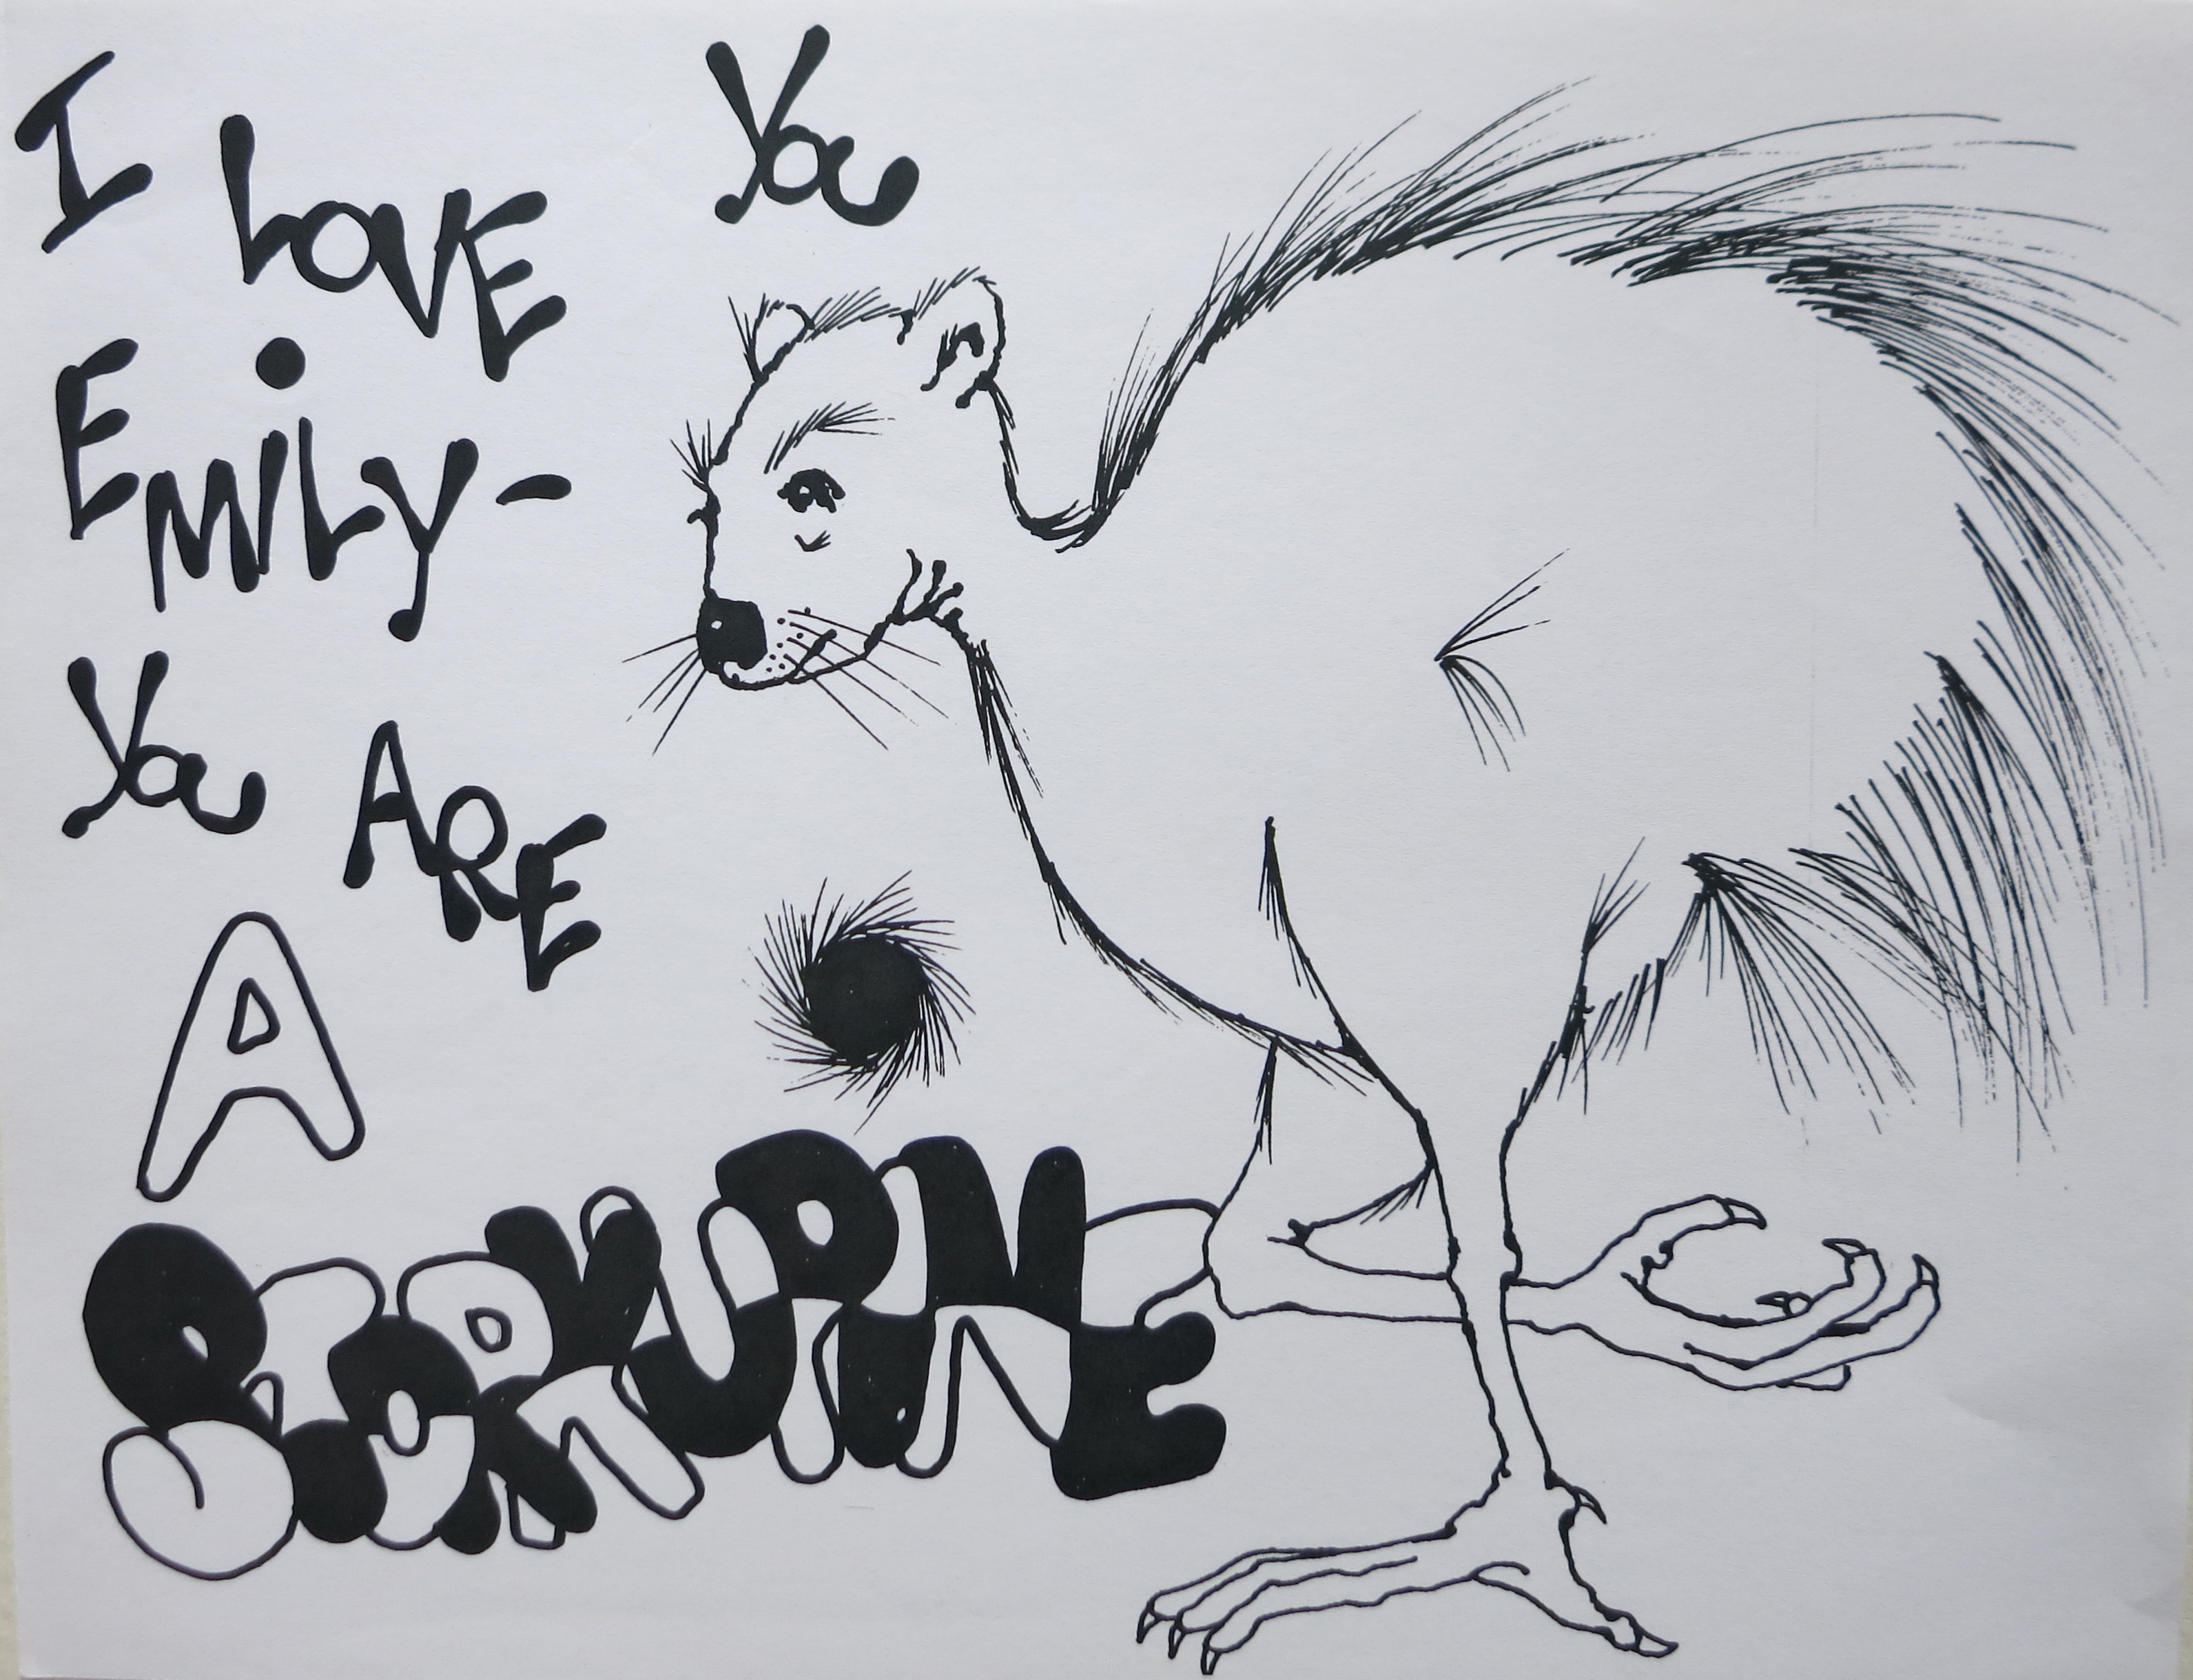 I LOVE You
EMiLy -
You ARE
A
STORKUPINE